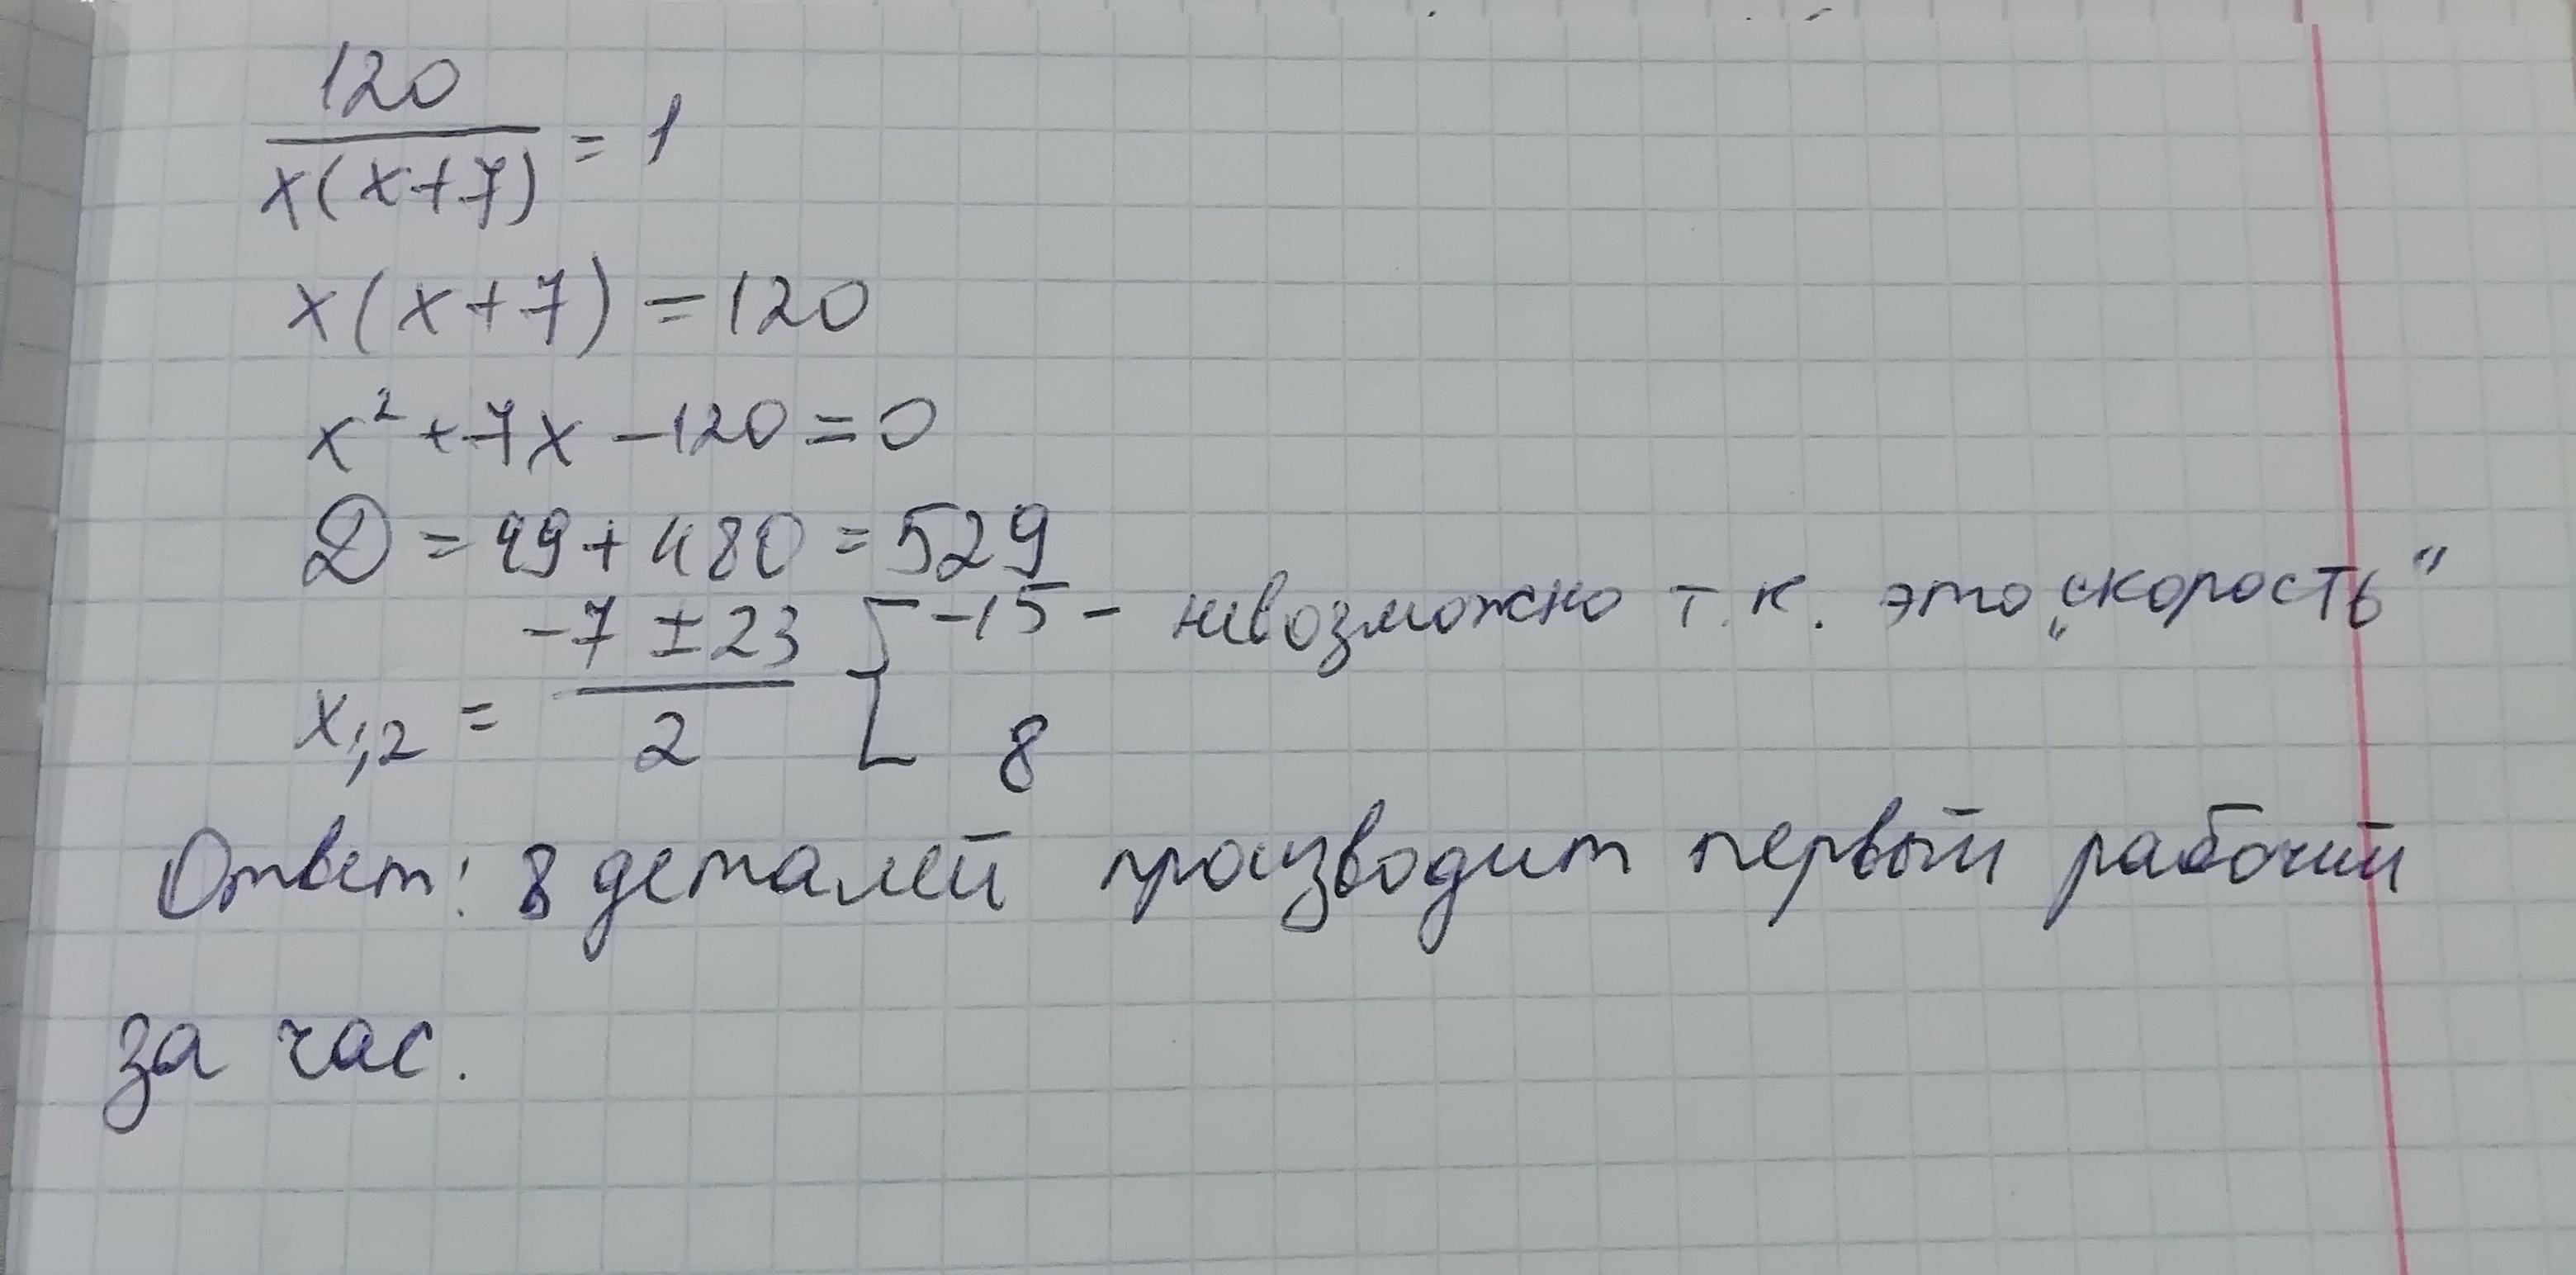 120
x(x+7) = 1
x(x+7) = 120
x² + 7x - 120 = 0
D = 49 + 480 = 529
x1,2 = -7 ± 23 / 2 [ -15 - невозможно т.к. это „скорость“
8
Ответ: 8 деталей производит первый рабочий
за час.